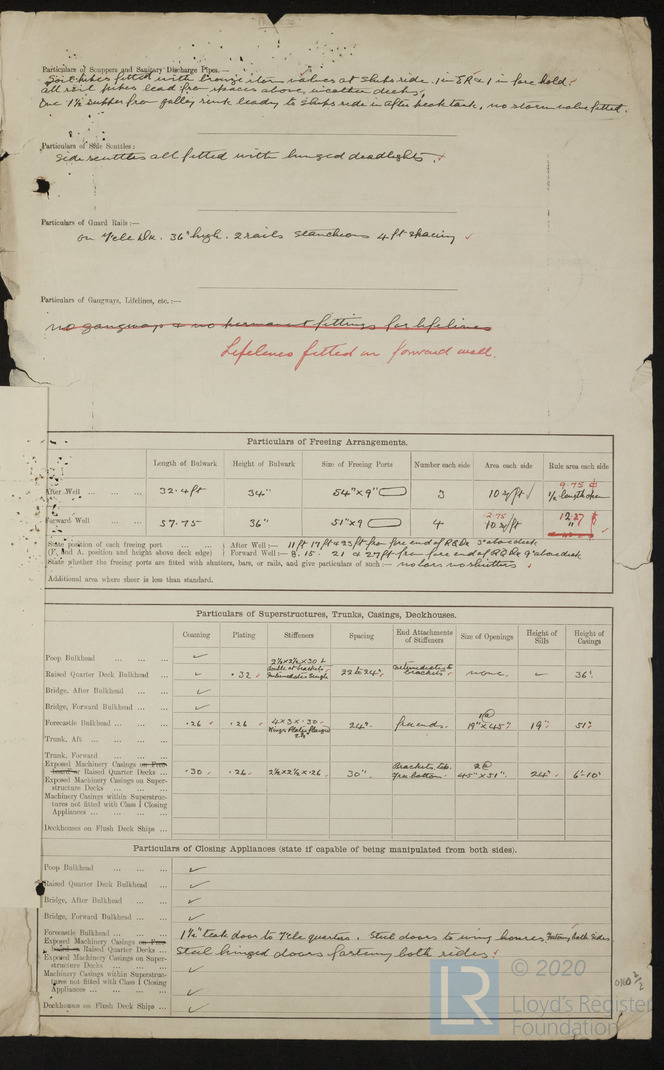 Particulars of Scuppers and Sanitary Discharge Pipes.—
Soil pipes fitted with bronze storm valves at ships side. 1 in ER & 1 in fore hold.
all soil pipes lead from spaces above weather decks.
One 1½ scupper from galley sink leading to ships side in after peak tank, no storm valve fitted.
Particulars of Side Scuttles:
Side scuttles all fitted with hinged deadlights.
Particulars of Guard Rails:—
on Fcle Dk. 36" high. 2 rails stanchions 4 ft spacing
Particulars of Gangways, Lifelines, etc.:—
no gangways & no permanent fittings for lifelines
Lifelines fitted in forward well.
Particulars of Freezing Arrangements.
Length of Bulwark Height of Bulwark Size of Freeing Ports Number each side Area each side Rule area each side
After Well ... ... ... 32.4 ft 34" 54" x 9" 3 10 □/ft 9.75 ½ length open
Forward Well ... ... 57.75 36" 51" x 9 4 2.75 10 □/ft 12.27 "
State position of each freeing port After Well:— 11 ft 17 ft & 23 ft from fore end of RQDk 3" above deck
(F. and A. position and height above deck edge) Forward Well:— 8. 15. 21 & 27 ft from fore end of RQDk 9" above deck
State whether the freeing ports are fitted with shutters, bars, or rails, and give particulars of such:— no bars no shutters
Additional area where sheer is less than standard.
Particulars of Superstructures, Trunks, Casings, Deckhouses.
Coaming Plating Stiffeners Spacing End Attachments of Stiffeners Size of Openings Height of Sills Height of Casings
Poop Bulkhead ... ... ...
Raised Quarter Deck Bulkhead ... .32 2½x2½x.30 + Intermediate single 22 to 24" Intermediates to brackets none. 36"
Bridge, After Bulkhead ... ...
Bridge, Forward Bulkhead ... ...
Forecastle Bulkhead ... ... ... .26 .26 4x3x.30 24" 19" x 45" 19" 51"
Trunk, Aft ... ... ...
Trunk, Forward ... ... ...
Exposed Machinery Casings on Free-
board or Raised Quarter Decks ... .30 .26 2½x2½x.26 30" Brackets top. free bottom. 2@ 45" x 51" 24" 6'-10"
Exposed Machinery Casings on Super-
structure Decks ... ... ...
Machinery Casings within Superstruc-
tures not fitted with Class I Closing
Appliances ... ... ... ...
Deckhouses on Flush Deck Ships ...
Particulars of Closing Appliances (state if capable of being manipulated from both sides).
Poop Bulkhead ... ... ...
Raised Quarter Deck Bulkhead ...
Bridge, After Bulkhead ... ...
Bridge, Forward Bulkhead ... ...
Forecastle Bulkhead ... ... ... 1¾" teak door to Fcle quarters. Steel doors to wing houses fastening both sides
Exposed Machinery Casings on Free-
board or Raised Quarter Decks ... Steel hinged doors fastening both sides.
Exposed Machinery Casings on Super-
structure Decks ... ... ...
Machinery Casings within Superstruc-
tures not fitted with Class I Closing
Appliances ... ... ... ...
Deckhouses on Flush Deck Ships ...
LR © 2020
Lloyd's Register
Foundation